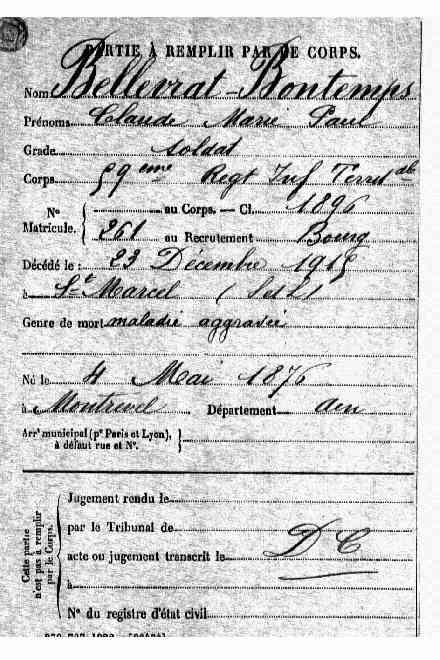 PARTIE À REMPLIR PAR LE CORPS.
Nom Bellevrat-Bontemps
Prénoms Claude Marie Paul
Grade soldat
Corps 59eme Regt Inf Territale
Nº Matricule. { au Corps. — Cl. 1896
261 au Recrutement Bourg
Décédé le : 23 Décembre 1915
à St Marcel
Genre de mort maladie aggravée
Né le 4 Mai 1876
à Montrevel Département Ain
Arrt municipal (pr Paris et Lyon), à défaut rue et Nº. }
Cette partie n'est pas à remplir par le Corps. {
Jugement rendu le
par le Tribunal de
acte ou jugement transcrit le
à
Nº du registre d'état civil
D C